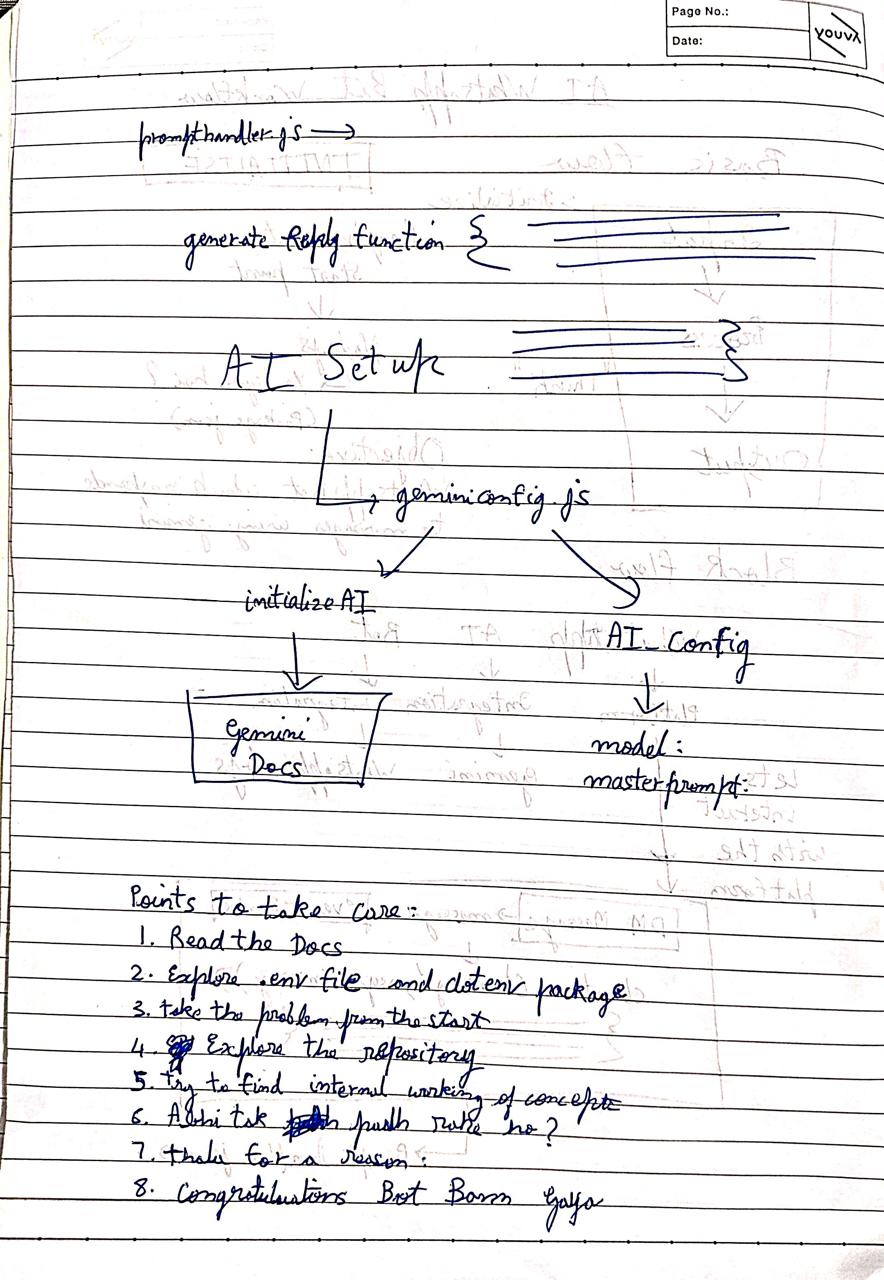 Page No.:
Date:
YOUVA
prompthandler.js →
generate Reply function {
AI Setup }
geminiconfig.js
initialize AI
AI_Config
Gemini
Docs
model:
masterprompt:
Points to take care:
1. Read the Docs
2. Explore .env file and dotenv package
3. take the problem from the start
4. Explore the repository
5. Try to find internal working of concepts
6. Abhi tak padh rahe ho?
7. thala for a reason:
8. Congratulations Bot Bann Gaya